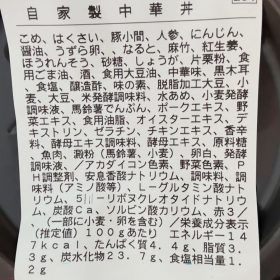 自家製中華丼
こめ、はくさい、豚小間、人参、にんじん、
醤油、うずら卵、、なると、麻竹、紅生姜、
ほうれんそう、砂糖、しょうが、片栗粉、食
用ごま油、酒、食用大豆油、中華味、黒木耳
、食塩、醸造酢、味の素、脱脂加工大豆、小
麦、大豆、米発酵調味料、水あめ、小麦発酵
調味液、馬鈴薯でん粉、ポークエキス、野
菜エキス、食用油脂、オイスターエキス、デ
キストリン、ゼラチン、チキンエキス、香辛
料、酵母エキス調味料、酵母エキス、原料糖
、魚肉、澱粉(馬鈴薯、小麦)、卵白、発酵
調味液、/、アカダイコン色素、野菜色素、p
H調整剤、安息香酸ナトリウム、調味料、調
味料(アミノ酸等)、L-グルタミン酸ナト
リウム、5'-リボヌクレオタイドナトリウ
ム、炭酸Ca、ソルビン酸カリウム、赤3/
、(一部に小麦・卵を含む)/栄養成分表示
(推定値)100gあたり エネルギー14
7kcal、たんぱく質4.4g、脂質3.
3g、炭水化物23.7g、食塩相当量1.
2g